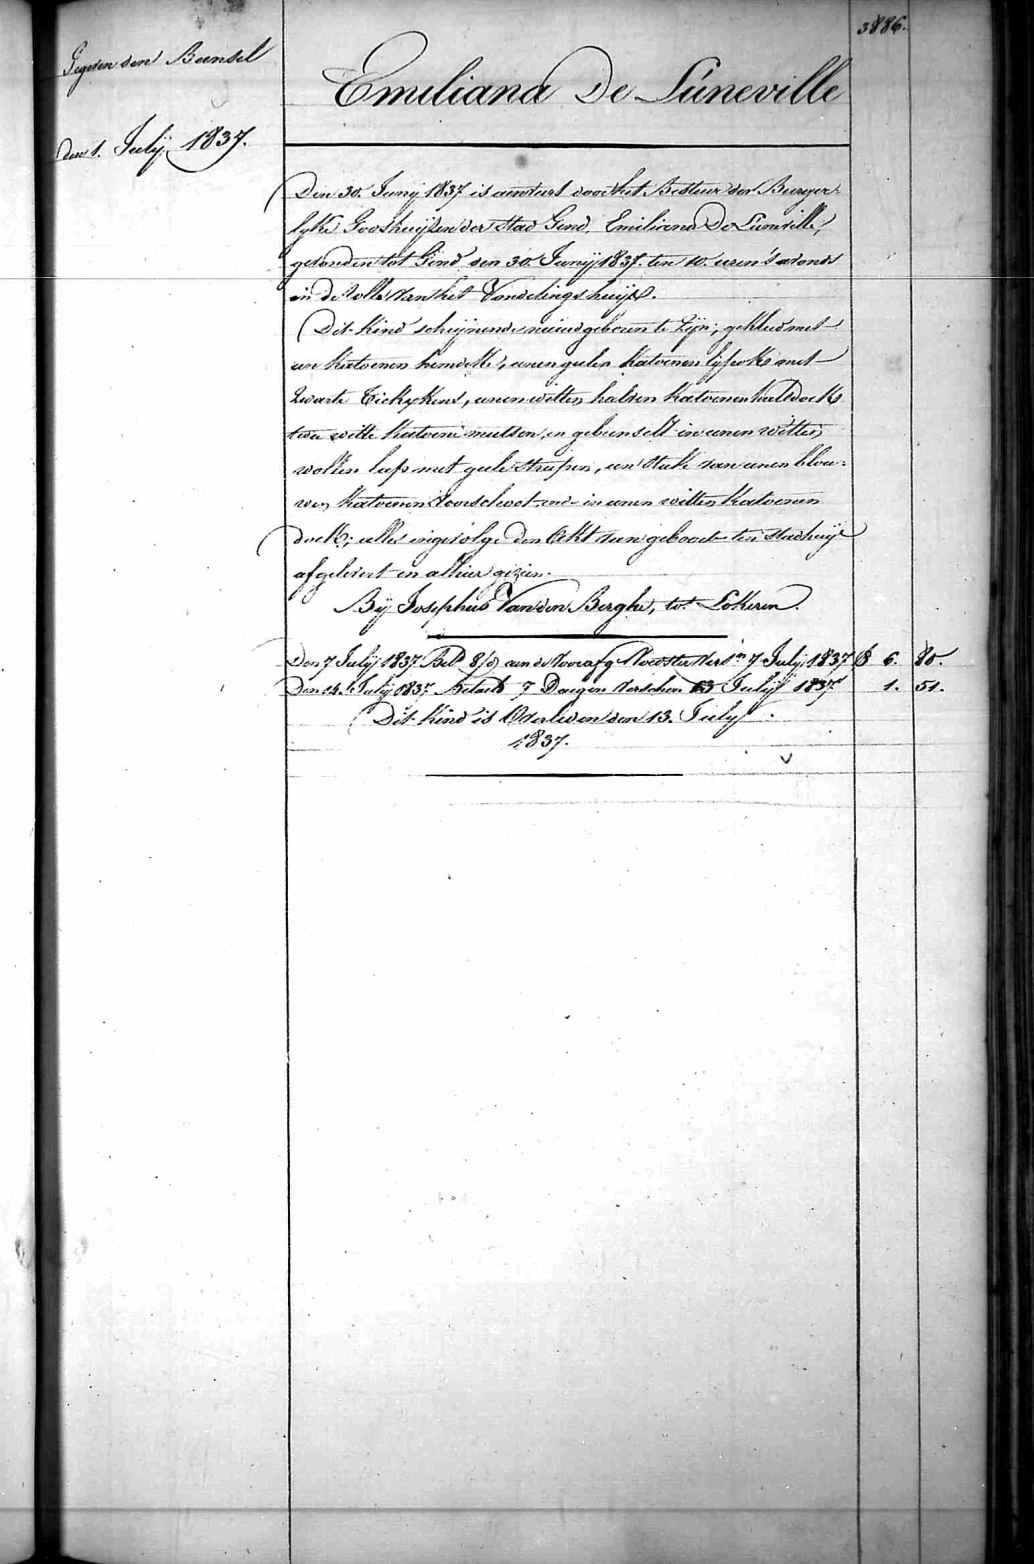 3886.
Gegeven den Bunsel
den 1. Julÿ 1837.
Emiliana De Lúneville
Den 30. Junÿ 1837 is aenveert door het Bestuur der Burger-
lyke Godshuÿsen der stad Gend, Emiliana De Luneville,
gevonden tot Gend den 30. Junÿ 1837. ten 10. uren 's avonds
in de rolle van het Vondelingshuÿs.
Dit kind schÿnende nieuwgeboren te zÿn; gekleed met
een katoenen hemdeke, eenen geelen katoenen lÿfrok met
zwarte Tickxkens, eenen witten halven katoenen halsdoek
twee witte katoene mutsen, en gebunselt in eenen witten
wollen lap met geele streepen, een stuk van eenen blau-
wen katoenen voorschoot, ende in eenen witten katoenen
doek; alles ingevolge den Akt van geboorte ten stadhuÿse
afgelevert en alhier gezien.
Bÿ Josephus Van den Berghe, tot Lokeren.
Den 7 Julÿ 1837. Bet. aen de voedster 7 Julÿ 1837 6. 80.
Den 14. Julÿ 1837. Betaelt 7 Daegen verschenen 13 Julÿ 1837 1. 51.
Dit kind is Overleden den 13. Julÿ
1837.